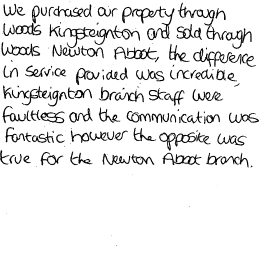 We purchased our property through
Woods Kingsteignton and sold through
Woods Newton Abbot, the difference
in service provided was incredible,
Kingsteignton branch staff were
faultless and the communication was
fantastic however the opposite was
true for the Newton Abbot branch.